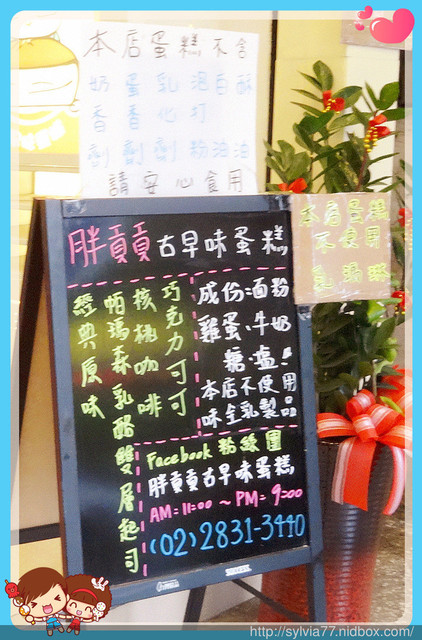 本店蛋糕不含
奶香劑
蛋香劑
乳化劑
泡打粉
白油
酥油
請安心食用
本店蛋糕
不使用
乳瑪琳
胖貢貢古早味蛋糕
巧克力可可
核桃咖啡
帕瑪森乳酪雙層起司
經典原味
成份:面粉
雞蛋、牛奶
糖、塩!
本店不使用
味全乳製品
Facebook 粉絲團
胖貢貢古早味蛋糕
AM=11:00 ~ PM=9:00
(02)2831-3440
http://sylvia77.nidbox.com/